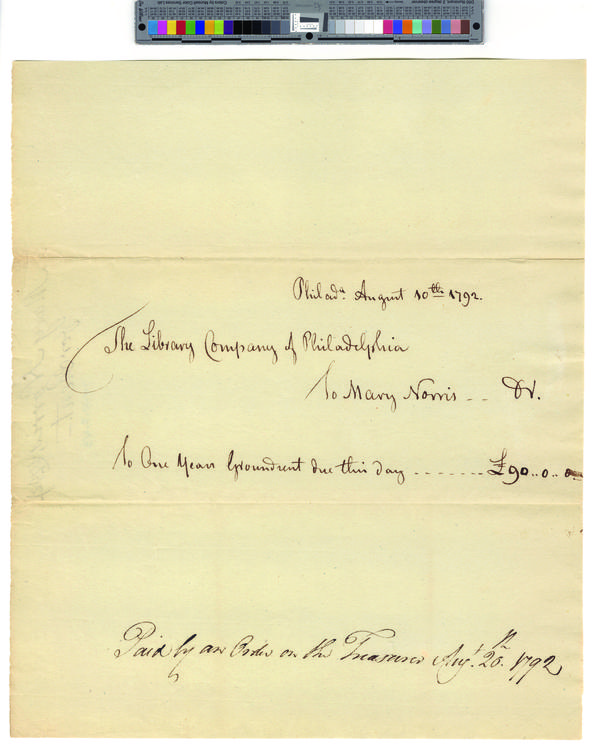 Philad.ª August 10th 1792.
The Library Company of Philadelphia
To Mary Norris -- Dr.
To One Years Groundrent due this day ------- £90..0..0
Paid by an Order on the Treasurer Augt. 20th 1792